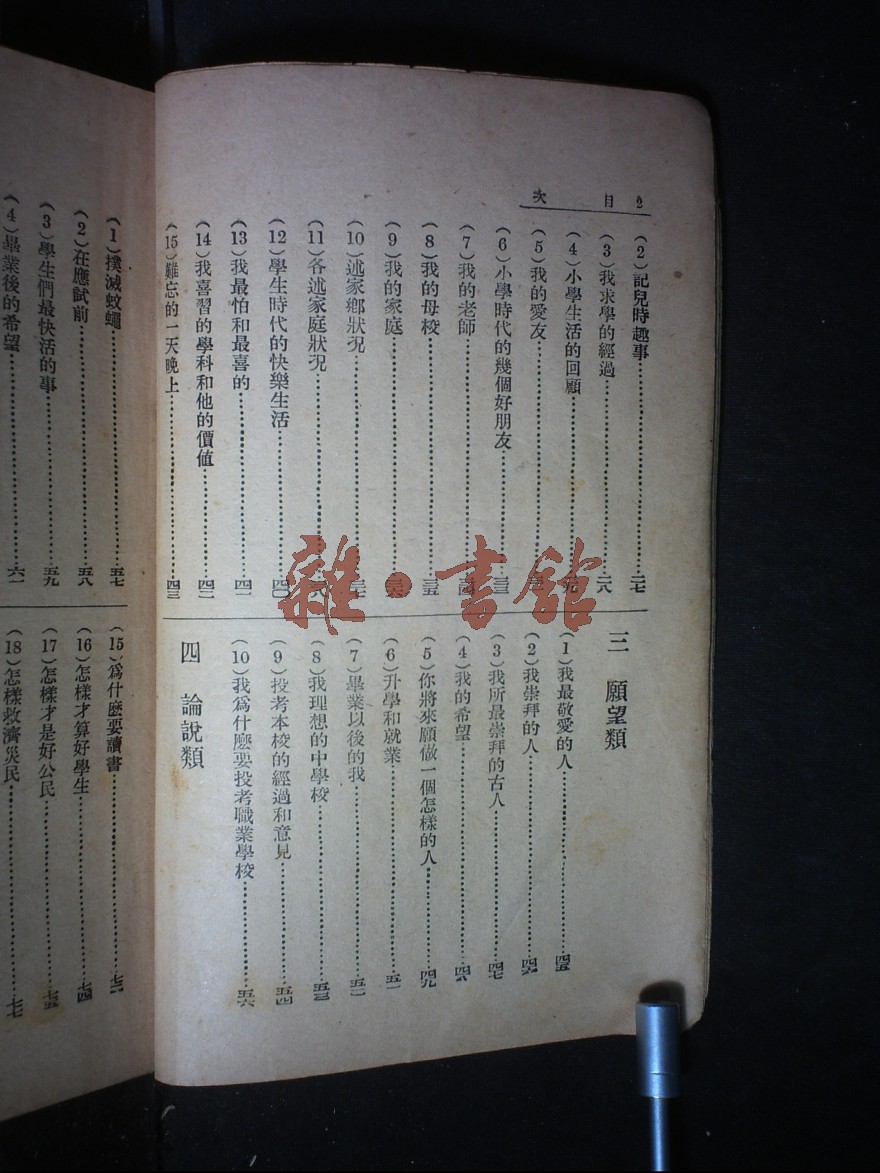 2 目次
(2)記兒時趣事……二七
(3)我求學的經過……二八
(4)小學生活的回顧……二九
(5)我的愛友
(6)小學時代的幾個好朋友……三三
(7)我的老師……三四
(8)我的母校……三五
(9)我的家庭……三六
(10)述家鄉狀况……三七
(11)各述家庭狀况……三八
(12)學生時代的快樂生活……四〇
(13)我最怕和最喜的……四一
(14)我喜習的學科和他的價値……四二
(15)難忘的一天晚上……四三
三 願望類
(1)我最敬愛的人……四五
(2)我崇拜的人……四六
(3)我所最崇拜的古人……四七
(4)我的希望……四八
(5)你將來願做一個怎樣的人……四九
(6)升學和就業……五一
(7)畢業以後的我……五二
(8)我理想的中學校……五三
(9)投考本校的經過和意見……五四
(10)我爲什麽要投考職業學校……五六
四 論說類
(1)撲滅蚊蠅……五七
(2)在應試前……五八
(3)學生們最快活的事……五九
(4)畢業後的希望……六一
(15)爲什麽要讀書
(16)怎樣才算好學生……七四
(17)怎樣才是好公民……七五
(18)怎樣救濟災民……七七
雜·書館